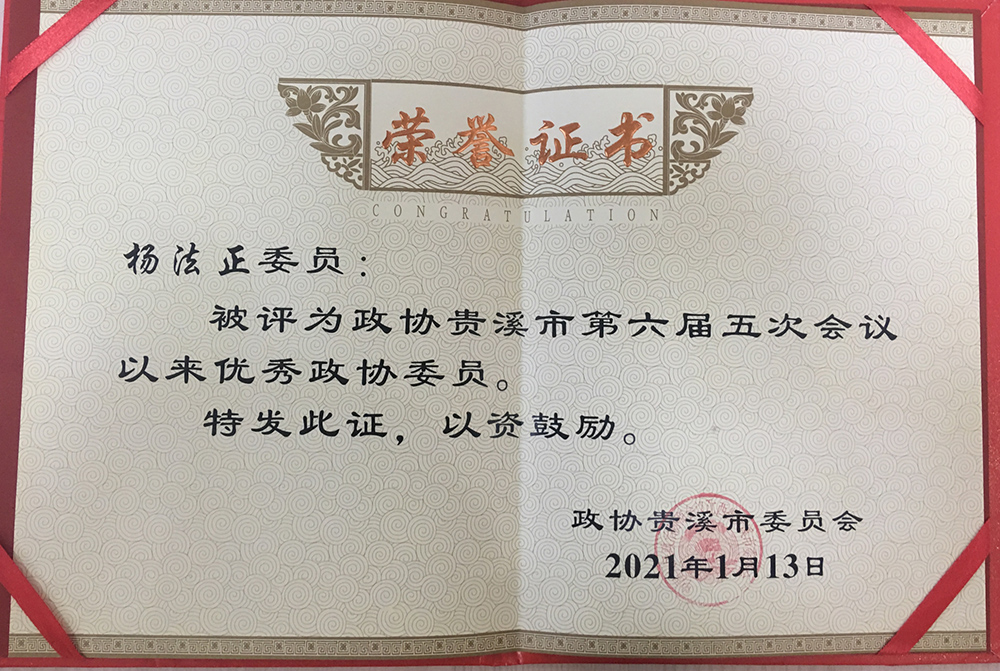 荣誉证书
CONGRATULATION
杨法正委员：
被评为政协贵溪市第六届五次会议
以来优秀政协委员。
特发此证，以资鼓励。
政协贵溪市委员会
2021年1月13日